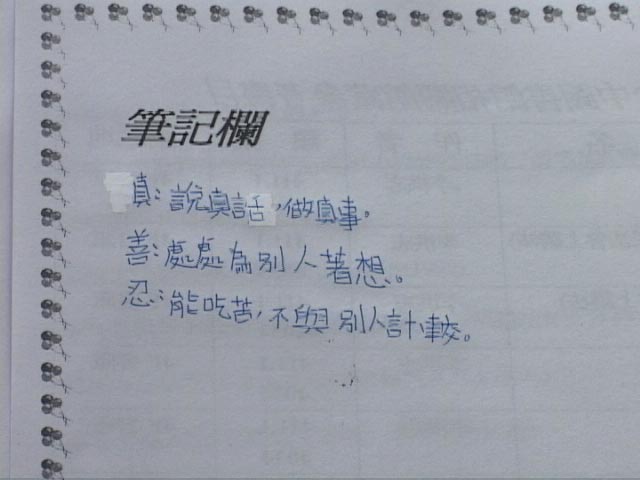 筆記欄
真:說真話,做真事。
善:處處為別人著想。
忍:能吃苦,不與別人計較。